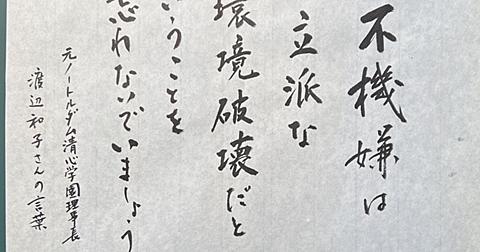 不機嫌は
立派な
環境破壊だと
いうことを
忘れないでいましょう
元ノートルダム清心学園理事長
渡辺和子さんの言葉